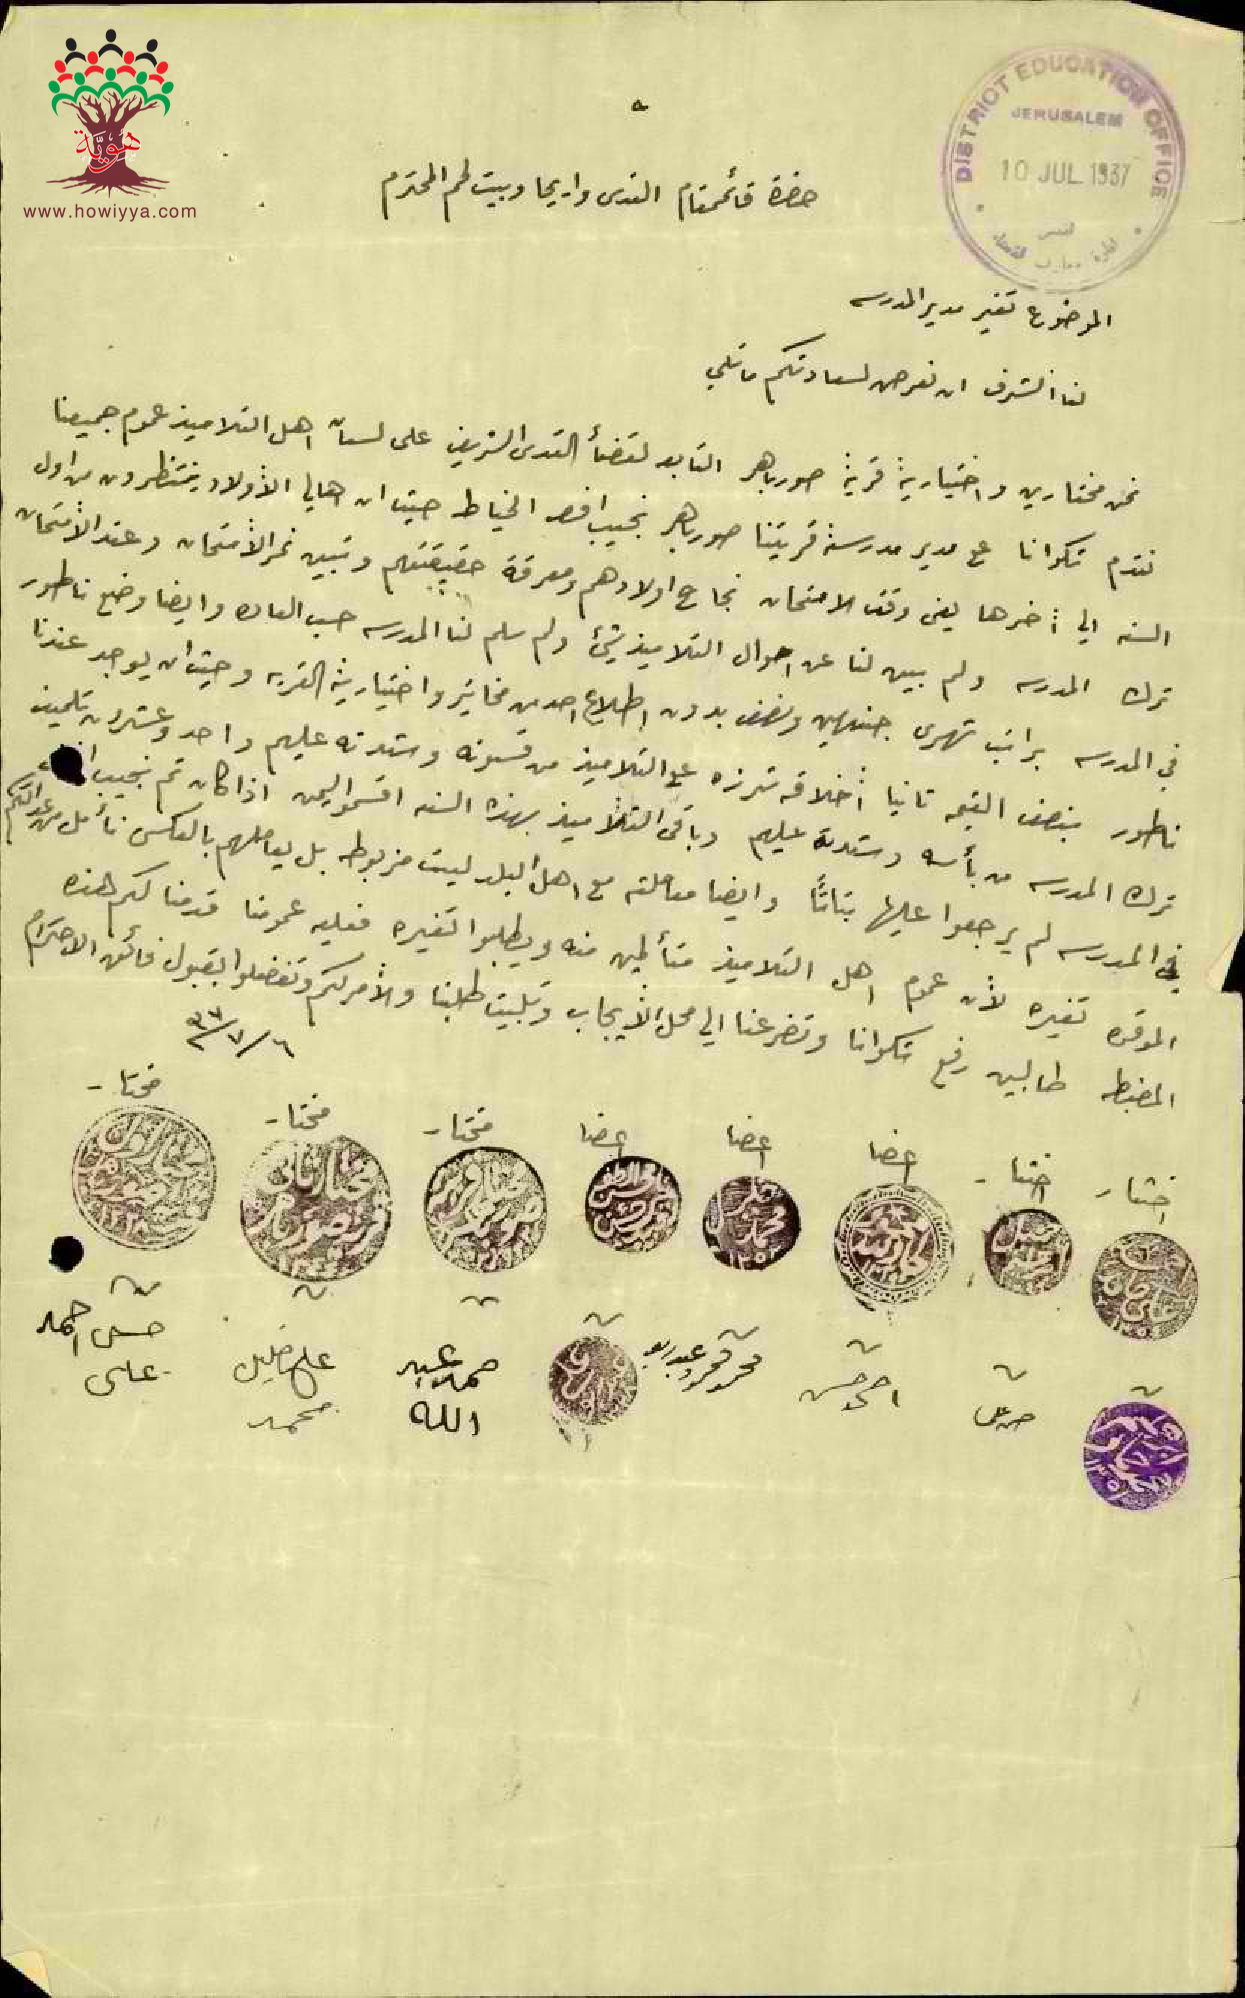 هوية
www.howiyya.com
DISTRICT EDUCATION OFFICE
JERUSALEM
10 JUL 1937
القدس
ادارة معارف القضاء
حضرة قائمقام القدس واريحا وبيت لحم المحترم
الموضوع تغير مدير المدرسه
لنا الشرف ان نعرض لسعادتكم ما يلي
نحن مختارين و اختيارية قرية صورباهر التابعه لقضأ القدس الشريف على لسان اهل التلاميذ عموم جميعنا
نقدم شكوانا على مدير مدرسة قريتنا صورباهر نجيب افندي الخياط حيث ان اهالي الأولاد ينتظرون من اول
السنه الي أخرها يعني وقت الامتحان نجاح اولادهم ومعرفة حقيقتهم وتبين نمر الأمتحان وعند الأمتحان
ترك المدرسه ولم يبين لنا عن احوال التلاميذ شيئ ولم سلم لنا المدرسه حسب العاده وايضا وضع ناطور
في المدرسه براتب شهري جنيهين ونصف بدون اطلاع احد من مخاتير واختيارية القريه وحيث ان يوجد عندنا
ناطور بنصف القيمه ثانيا أخلاقه شرزه على التلاميذ من قسوته وشدته عليهم واحد وعشرون تلميذ
ترك المدرسه من بأسه وشدته عليهم وباقي التلاميذ بهذه السنه اقسموا اليمن اذا كان تم نجيب
في المدرسه لم يرجعوا عليها بتاتًا وايضا معاملته مع اهل البلد ليست مربوطه بل يعاملهم بالعكس نأمل من عدالتكم
الموقره تغيره لأن عموم اهل التلاميذ متألمين منه ويطلبوا تغيره فعليه عمومنا قدمنا لكم هذه
المضبطه طالبين رفع شكوانا وتضرعنا الي محل الأيجاب وتلبيت طلبنا والأمر لكم وتفضلوا بقبول فائق الاحترام
٦/٧/٣٧
اختيار اختيار اعضا اعضا اعضا مختار مختار مختار
احمد حسن
محمد محمود عبدربه
حمد عبد الله
علي خليل محمد
حسن احمد علي